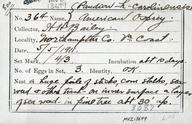 Pandion h. carolinensis
No 364 / American Osprey
Collector H. H. Bailey
Locality Northampton Co. Va Coast
Date 5/5/1911
Set Mark 1/43 Incubation abt 10 days
No. Eggs in Set, 3. Identity, OK
Nest a huge pile of sticks, corn stalks, sea
weed & other trash on inner surface a layer
of sea weed in pine tree abt 30' up.